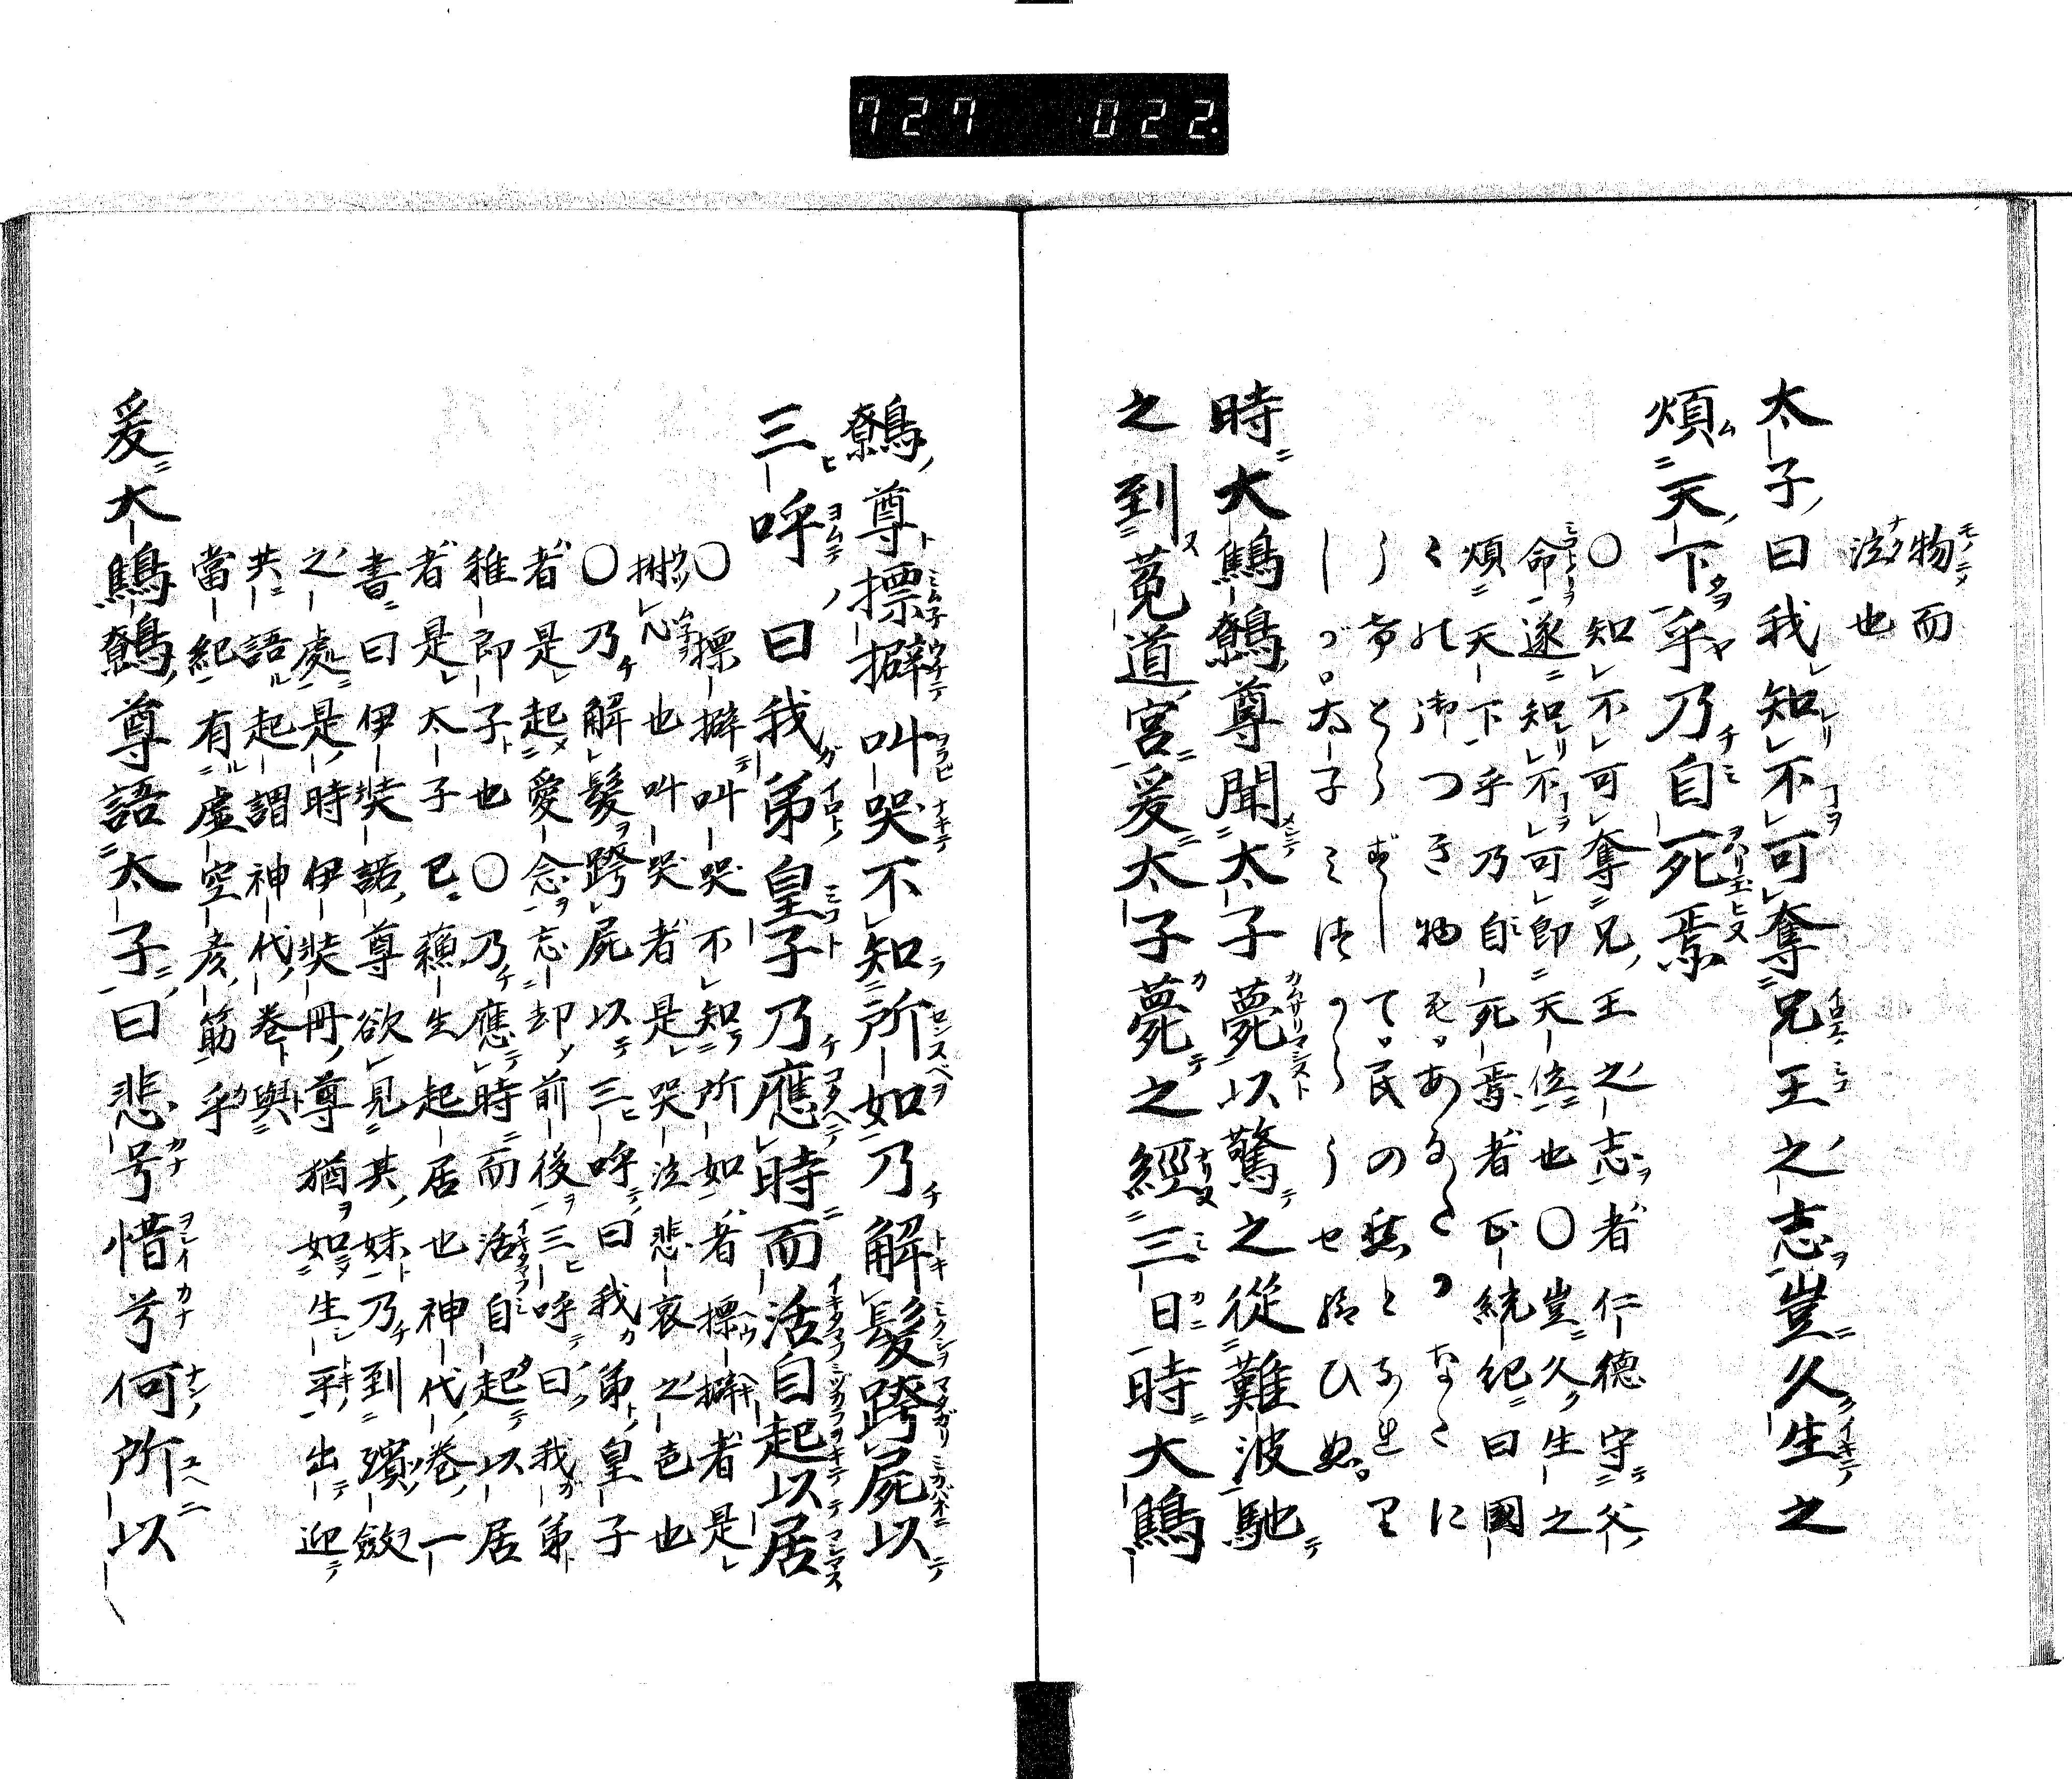 727 022.
物而
泣也
太子曰我知不可奪兄王之志豈久生之
煩天下乎乃自死焉
〇知不可奪兄王之志者仁德守父
命遂知不可即天位也〇豈久生之
煩天下乎乃自死焉者正統紀曰國
くの御つき物も。あなたこなたに
て。民の愁と
づ。太子みづからうせ給ひぬ。
時大鷦鷯尊聞太子薨以驚之從難波馳
之到菟道宮爰太子薨之經三日時大鷦
鷯尊摽擗叫哭不知所如乃解髮跨屍以
三呼曰我弟皇子乃應時而活自起以居
〇摽擗叫哭不知所如者摽擗者是
拊心也叫哭者是哭泣悲哀之色也
〇乃解髮跨屍以三呼曰我弟皇子
者是起愛念忘却前後三呼曰我弟
稚郎子也〇乃應時而活自起以居
者是太子已蘓生起居也神代卷一
書曰伊弉諾尊欲見其妹乃到殯斂
之處是時伊弉冊尊猶如生平出迎
共語起謂神代卷與
當紀有虛空彦筋乎
爰大鷦鷯尊語太子曰悲兮惜兮何所以